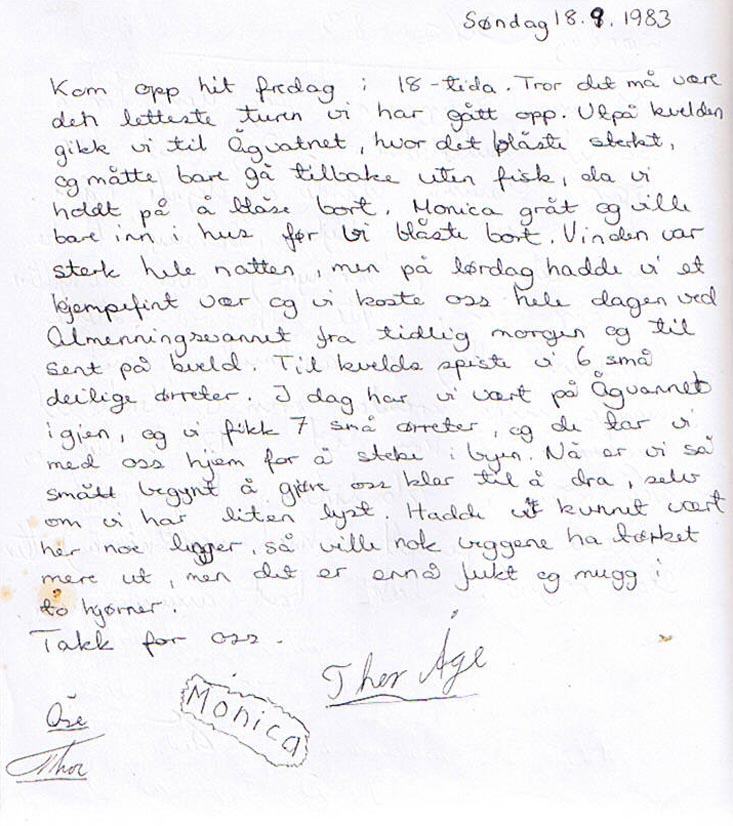 Søndag 18.9.1983
Kom opp hit fredag i 18-tida. Tror det må være
den letteste turen vi har gått opp. Utpå kvelden
gikk vi til Ågvatnet, hvor det blåste sterkt,
og måtte bare gå tilbake uten fisk, da vi
holdt på å blåse bort. Monica gråt og ville
bare inn i hus før vi blåste bort. Vinden var
sterk hele natten, men på lørdag hadde vi et
kjempefint vær og vi koste oss hele dagen ved
Almenningsvannet fra tidlig morgen og til
sent på kveld. Til kvelds spiste vi 6 små
deilige ørreter. I dag har vi vært på Ågvannet
igjen, og vi fikk 7 små ørreter, og de tar vi
med oss hjem for å steke i byen. Nå er vi så
smått begynt å gjøre oss klar til å dra, selv
om vi har liten lyst. Hadde vi kunnet vært
her noe lenger, så ville nok veggene ha tørket
mere ut, men det er ennå fukt og mugg i
to hjørner.
Takk for oss.
Thor Åge
Monica
Åse
Thor